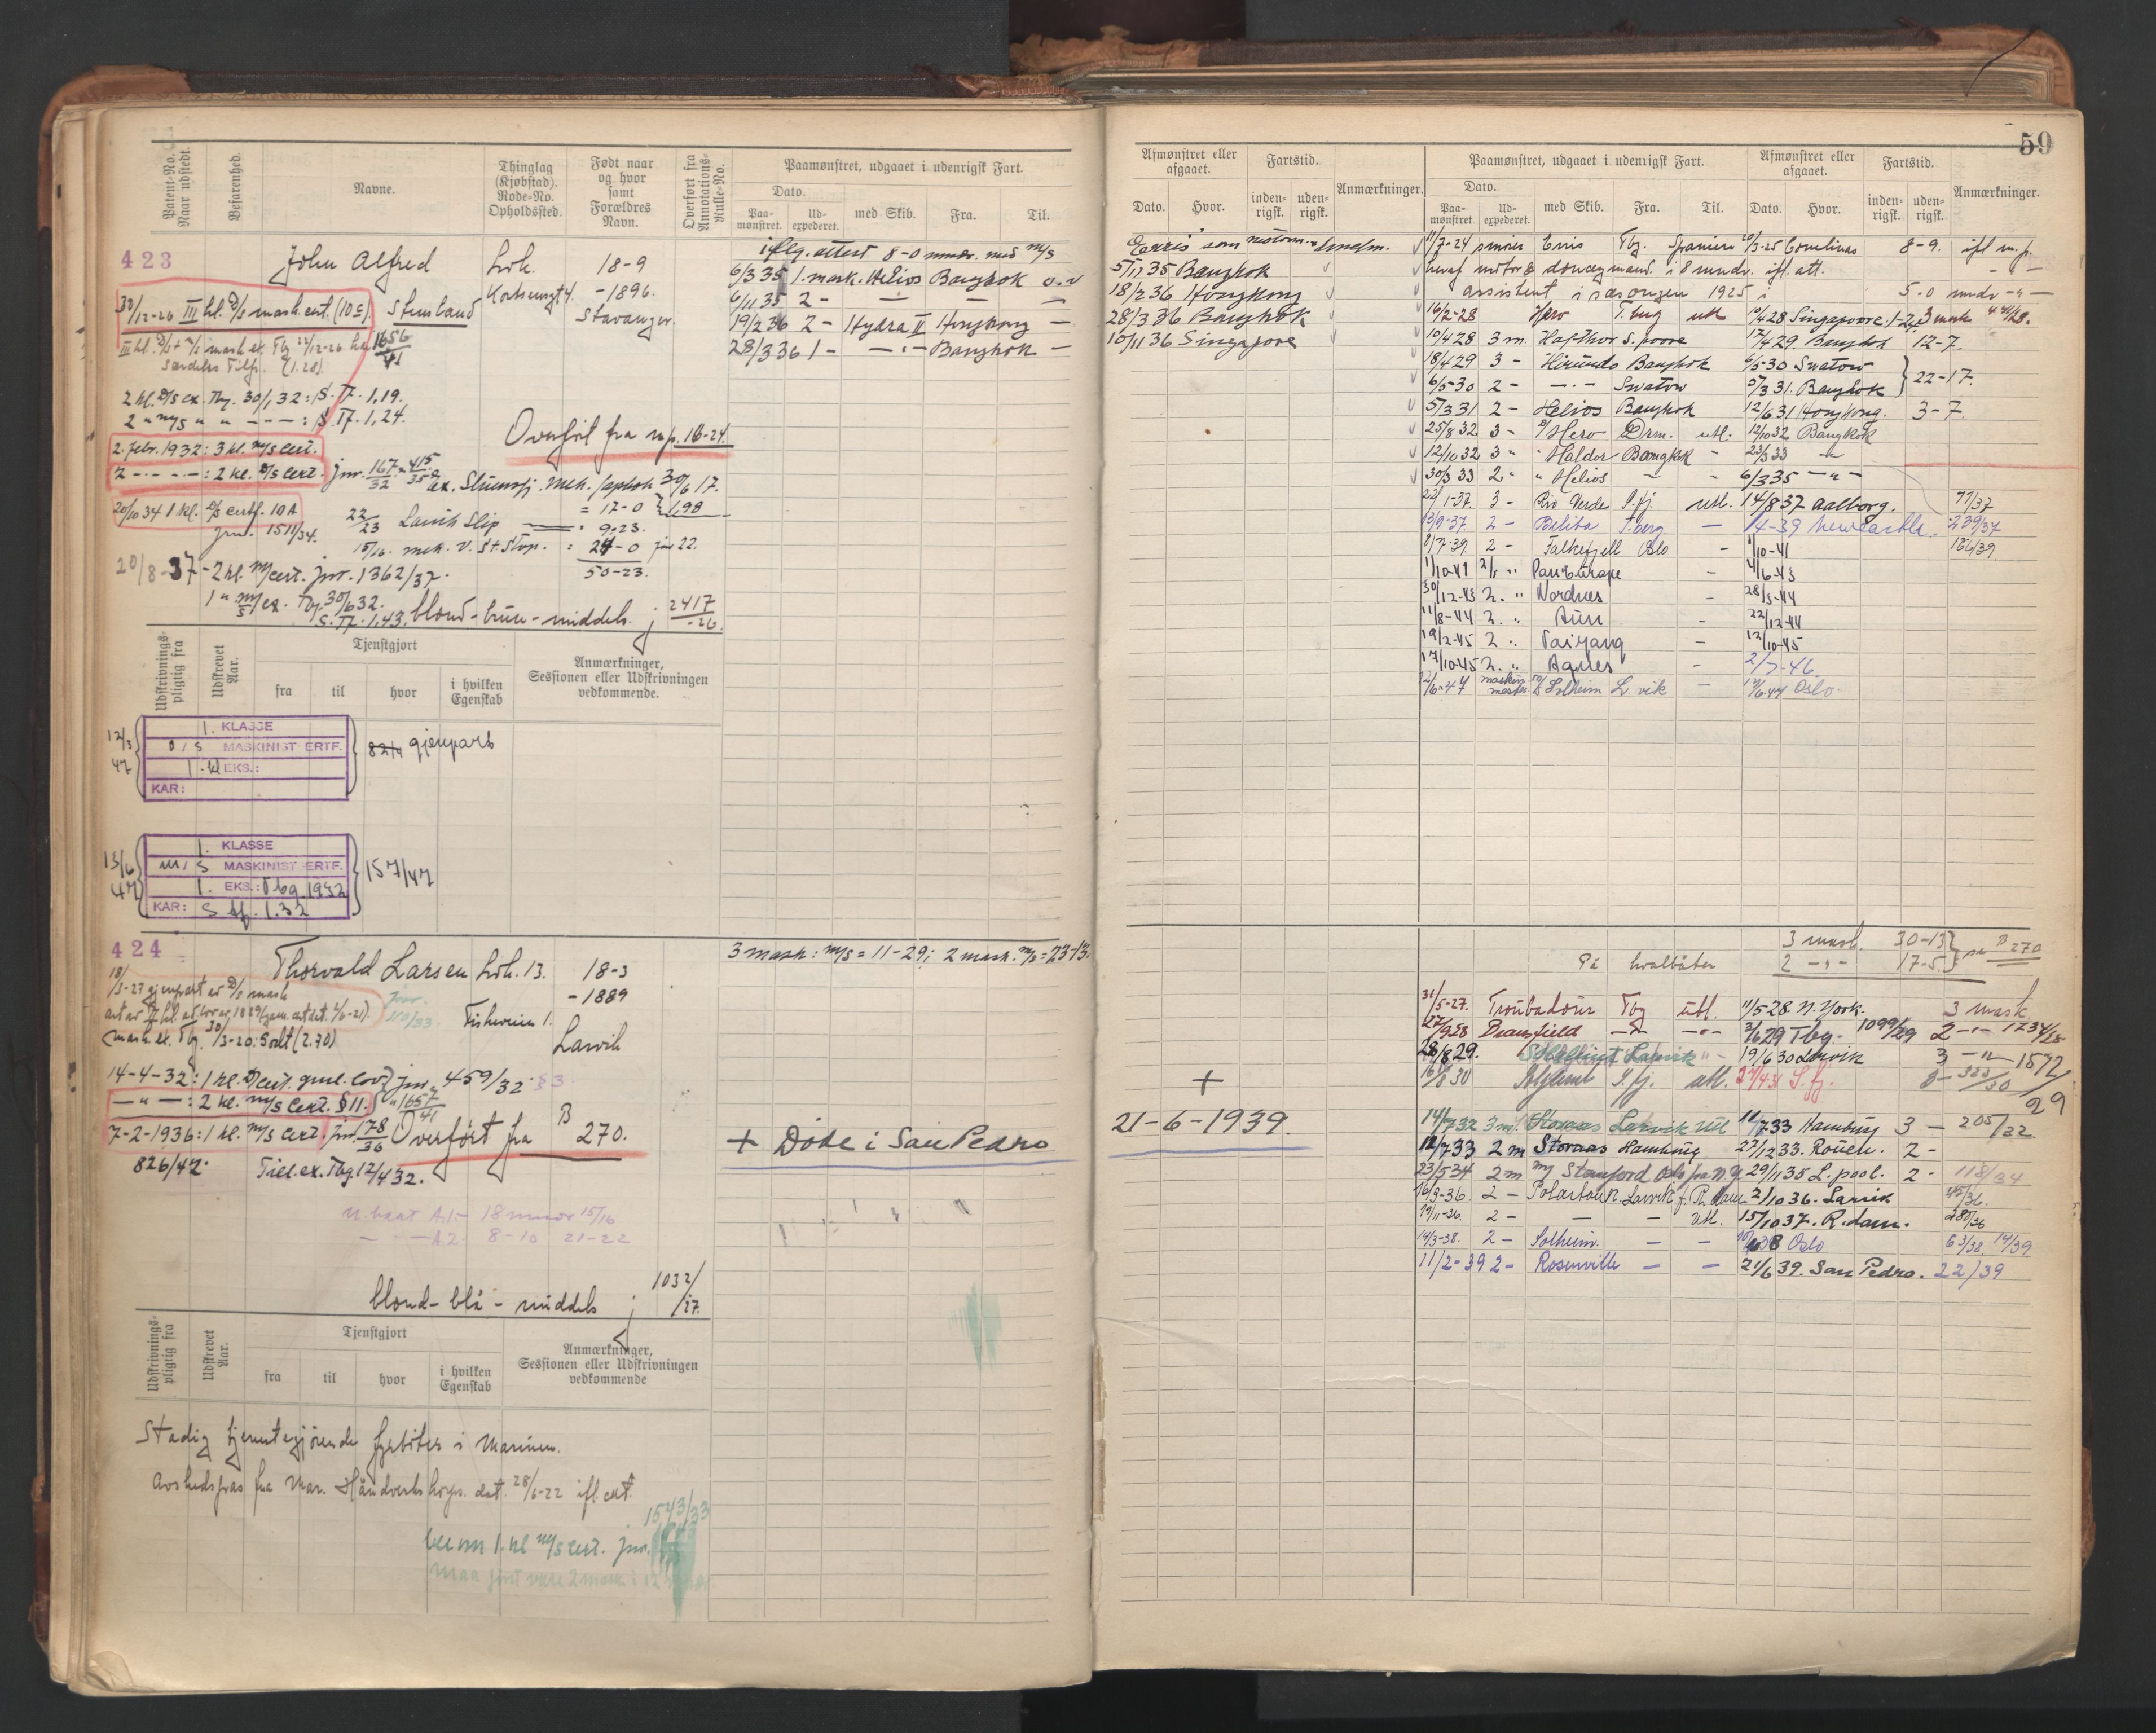 59
Patent-No. Naar udstedt.
Befarenhed.
Navne.
Thinglag (Kjøbstad). Rode-No. Opholdssted.
Født naar og hvor samt Forældres Navn.
Overført fra Annotations-Rulle-No.
Paamønstret, udgaaet i udenrigsk Fart.
Dato.
Paa-mønstret. Ud-expederet. med Skib. Fra. Til.
Afmønstret eller afgaaet.
Fartstid.
Anmærkninger.
Dato. Hvor. inden-rigsk. uden-rigsk.
Paamønstret, udgaaet i udenrigsk Fart.
Dato.
Paa-mønstret Ud-expederet. med Skib. Fra. Til.
Afmønstret eller afgaaet.
Fartstid.
Anmærkninger.
Dato. Hvor. inden-rigsk. uden-rigsk.
423
John Alfred
Stensland
Lvk.
18-9
-1896.
Stavanger.
30/12-26 III kl. D/s mask. cert. (10c)
1656/41
2 kl. D/s ex. Tbg. 30/1 32: S. Tf. 1,19.
2 " m/s " " — — : S. Tf. 1,24.
Overført fra mp. 16-24.
2. febr. 1932: 3 kl. m/s cert.
2 - - - - : 2 kl. D/s cert. jnr. 167/32
20/10 34 1 kl. D/s certf. 10A
jnr. 1511/34.
22/23 Larvik Slip
= 17-0
1,98
9-23.
24-0
50-23.
20/8-37 - 2 kl. m/cert. jnr. 1362/37.
1 " m/s ex. Tbg. 30/6 32.
S. Tf. 1,43. blond - brune - middels. j 2417/-26
iflg. attest 8-0 mndr. med m/s
6/3 35 1. mask. Helios Bangkok
6/11 35 2 - — — —
19/2 36 2 - Hydra II Hongkong —
28/3 36 1 - — " — Bangkok —
5/11 35 Bangkok
18/2 36 Hongkong
28/3 36 Bangkok
10/11 36 Singapore
11/7-24 smører Erris Tbg. Spanien 8-9.
assistent i sæsongen 1925 5-0 mndr - " -
16/2-28 Hero T.berg utl 10/4 28 Singapoore.
10/4 28 3 m. Hafthor S.poore 17/4 29. Bangkok 12-7.
18/4 29 3 - Hirundo Bangkok 6/5-30 Swatow
6/5-30 2 - — " — Swatow 5/3 31. Bangkok 22-17.
5/3 31 2 - Helios Bangkok 12/6 31 Hongkong. 3-7
25/8 32 3 - Hero Drm. utl. 12/10 32 Bangkok
12/10 32 3 " " Haldor Bangkok " 23/3 33 — " —
30/3 33 2 " " Helios - - 6/3 35 — " —
22/1-37. 3 - Rio Verde S.fj. utl. 14/8 37 Aalborg. 77/37
13/9-37. 2 - Belita T.berg — /4-39 Newcastle. 239/37
8/7-39. 2 - Falkefjell Oslo - 1/10-41 186/39
1/10-41 2/r " Pan Europe - 4/6-43
30/12-43 2. " Nordnes - 28/5-44
11/8-44 2. " Aun - 22/12-44
19/2-45 2 " Taiyang - 12/10-45
17/10-45 2. " Agnes - 2/7-46
12/6-47 maskin mester m/s Solheim L.vik — Oslo.
Udskrivnings-pligtig fra
Udskrevet Aar.
Tjenstgjort
fra til hvor i hvilken Egenskab
Anmærkninger, Sessionen eller Udskrivningen vedkommende.
12/3 47
1. KLASSE
D/S MASKINIST ERTF.
1. kl EKS.:
KAR:
gjenpart
13/6 47
1. KLASSE
m/S MASKINIST ERTF.
1. EKS.: Tbg. 1932
KAR: S tf. 1.32
157/47
424
Thorvald Larsen
Lvk. 13.
18-3
-1889
Fiskerveien 1.
Larvik
18/3-27 gjenpart av D/s mask
mask. ex. Tbg. 30/3-20: Godt (2.70)
14-4-32: 1 kl. D/cert. gml. lov jnr. 459/32 § 3.
— " — : 2 kl. m/s Cert. § 11. " 1657/41
7-2-1936: 1 kl. m/s Cert. jnr. 178/36 Overført fra B 270.
826/42. Till. ex. Tbg. 12/4 32.
A.1 - 18 mndr 15/16
— " — A2. 8-10 21-22
blond - blå - middels j 1032/27.
3 mask: m/s = 11-29; 2 mask. m/s = 23-13.
+ Døde i San Pedro
+
21-6-1939.
På hvalbåter
3 mask. 30-13
2 - " - 17-5
D 270
31/5-27. Troubadour Tbg utl. 11/5-28. N.York. 3 mask
27/9 28 Deansfield — " — — " — 2/6 29 Tbg. 1099/29 2 - " - 1234/28
28/8 29. Solglimt Larvik " - 19/6 30 Larvik 3 - " - 1572/29
16/8 30 Solglimt S.fj. utl. 24/4 31 S.fj.
14/7 32 3 m. Storaas Larvik utl 11/7 33 Hamburg 3 — 205/32
12/7 33 2 m Storaas Hamburg 27/12 33. Rouen. 2 -
23/5 34 2 m m/s Stanford Oslo fra N.Y. 29/11 35 L.pool. 2 - 118/34
16/3-36. 2 - Polarboøn. Larvik 2/10 36. Larvik 45/36.
19/11-36. 2 - — — utl. 15/10 37. R.dam. 280/36
14/3-38. 2 - Solheim. — — Oslo 63/38. 14/39
11/2-39 2 - Rosenville — — 21/6 39. San Pedro. 22/39
Udskrivnings-pligtig fra
Udskrevet Aar.
Tjenstgjort
fra til hvor i hvilken Egenskab
Anmærkninger, Sessionen eller Udskrivningen vedkommende
Stadig tjenestegjørende fyrbøter i Marinen.
Avskedspas fra Mar. Håndverkskorps. dat. 28/6-22 ifl. att.
1543/33
bee om 1. kl m/s cert. jnr.
maa først være 2 mask. i 12